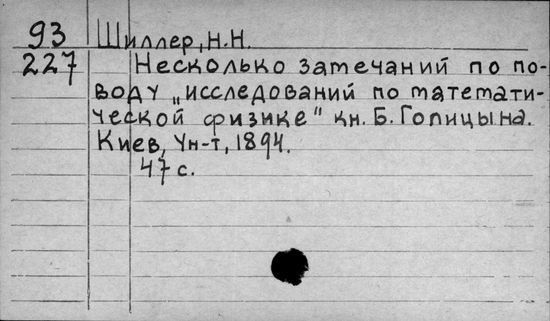 93 Шиллер, Н.Н.
227 Несколько замечаний по по-
воду „исследований по математи-
ческой физике" кн. Б. Голицына.
Киев, Ун-т, 1894.
47 с.